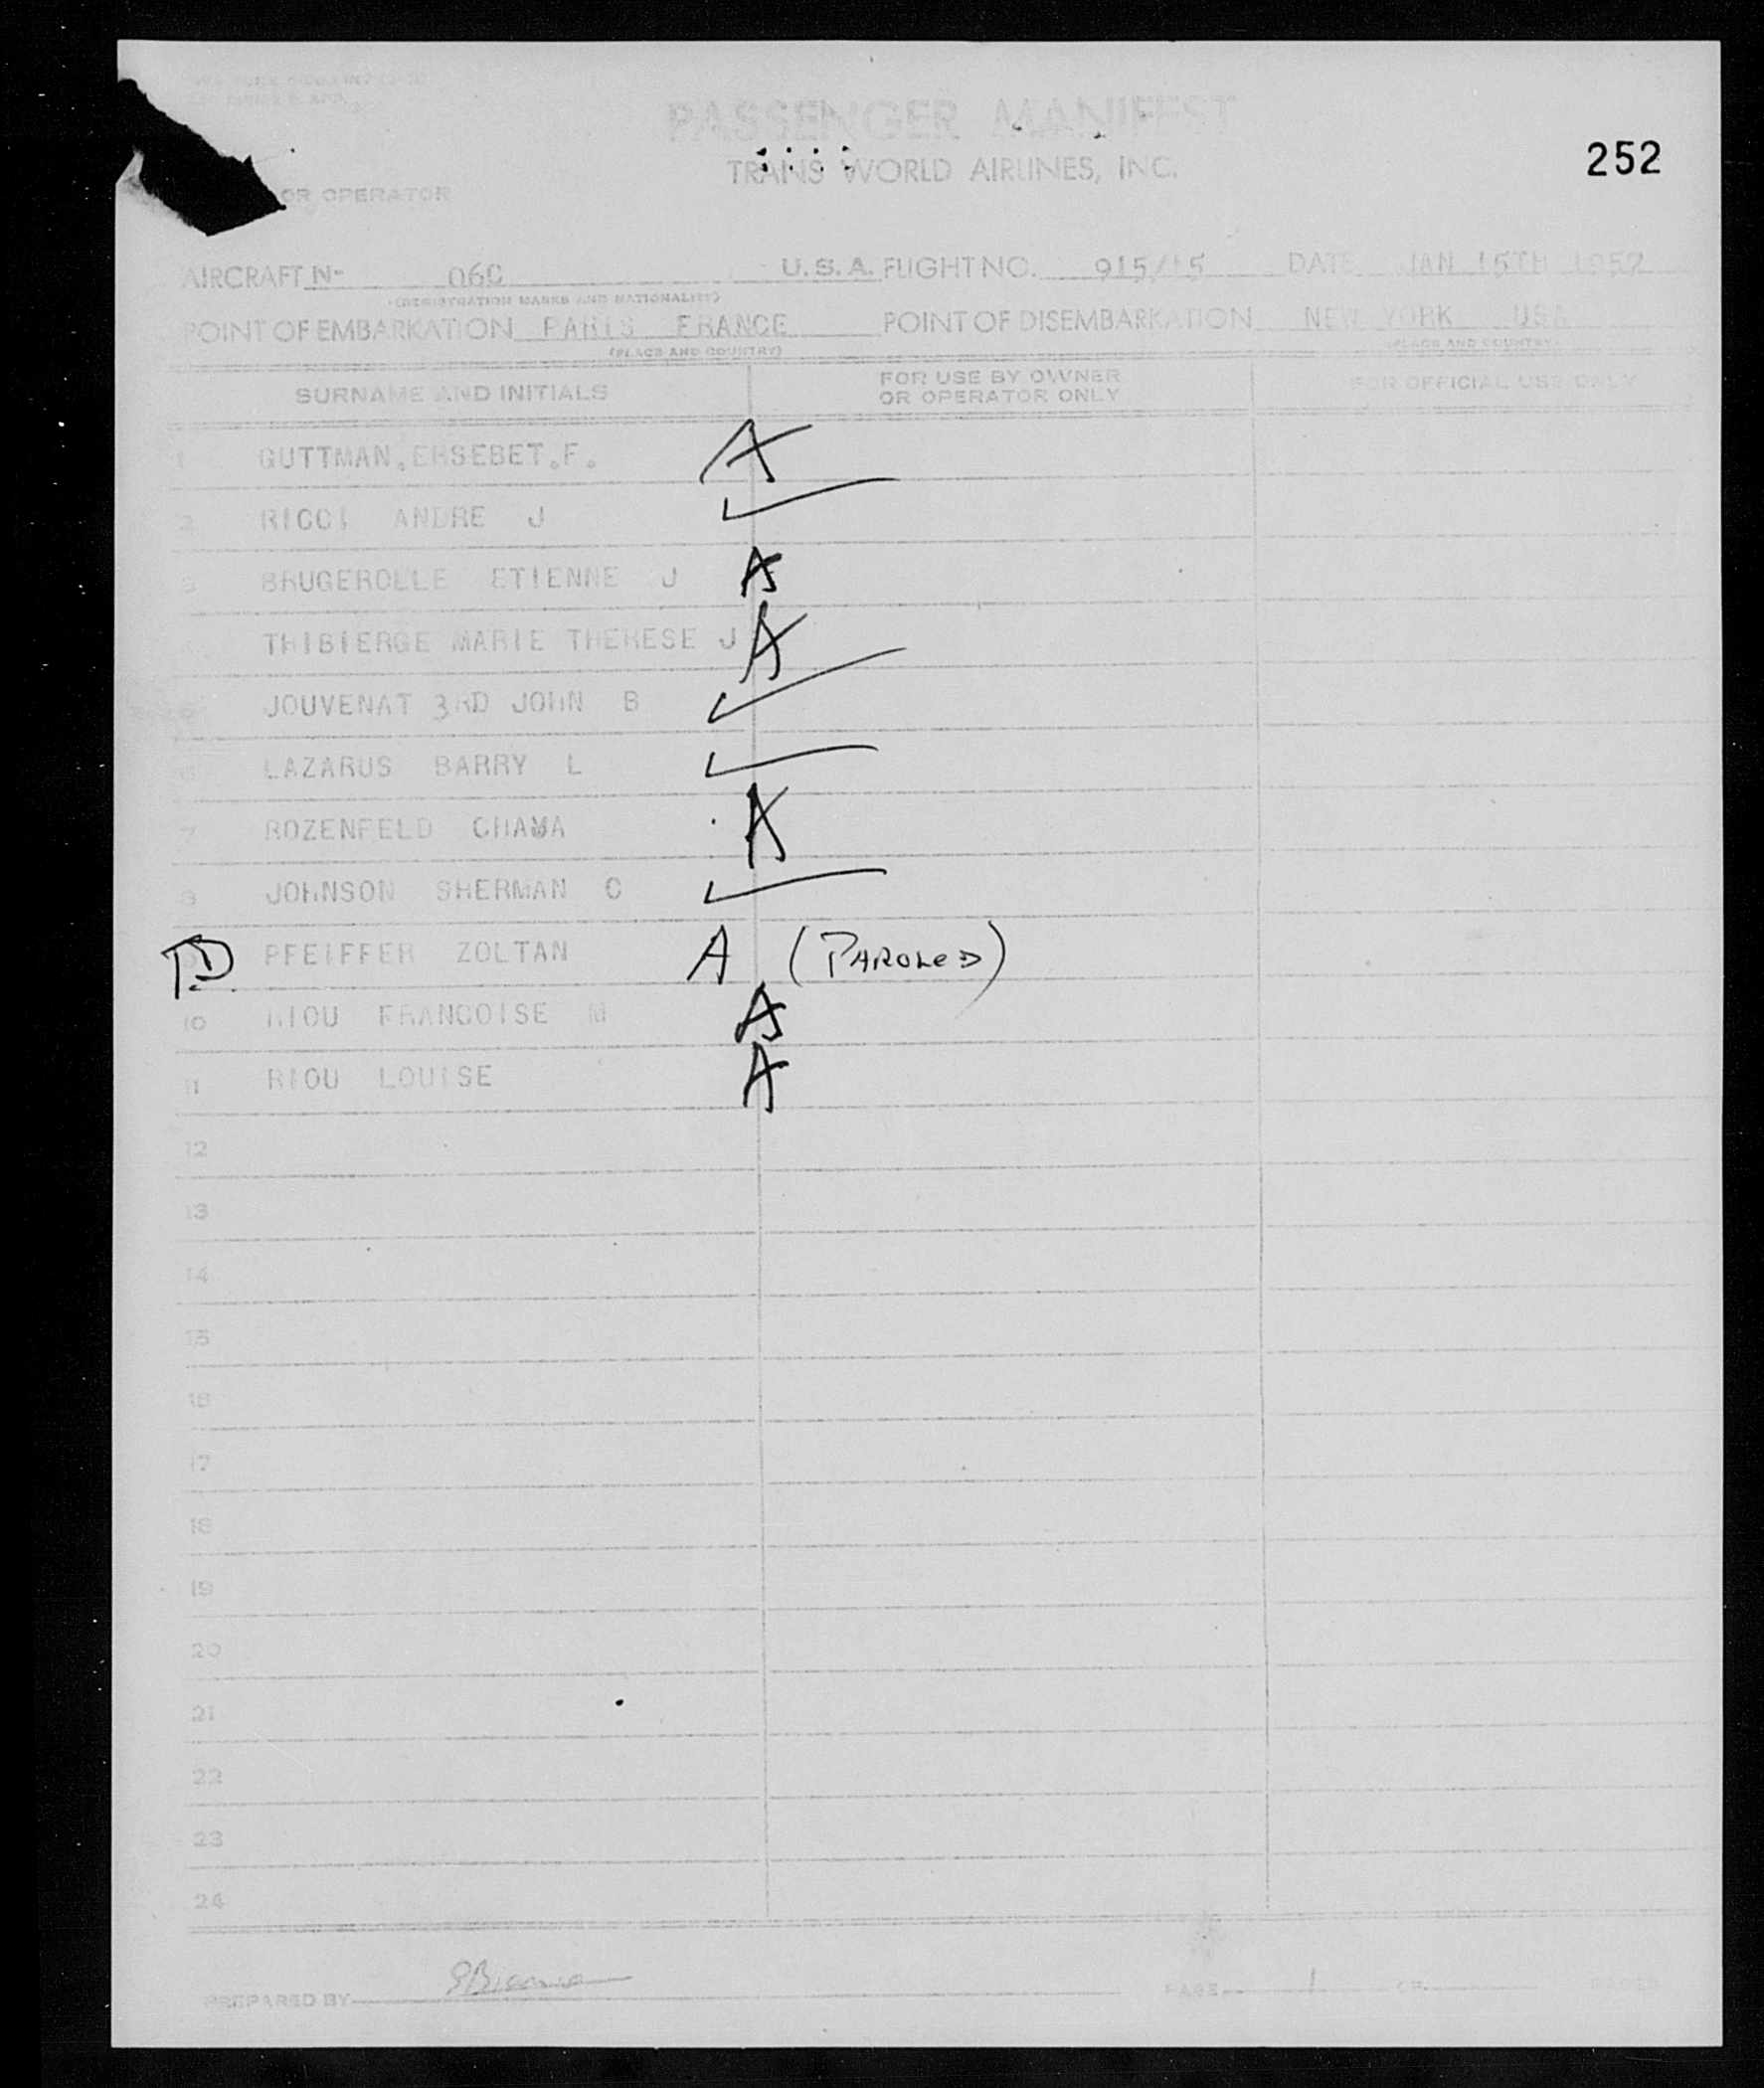 PASSENGER MANIFEST
TRANS WORLD AIRLINES, INC.
252
OR OPERATOR
AIRCRAFT N- 06C U.S.A. FLIGHT NO. 915/15 DATE JAN 15TH 1957
(REGISTRATION MARKS AND NATIONALITY)
POINT OF EMBARKATION PARIS FRANCE POINT OF DISEMBARKATION NEW YORK USA
(PLACE AND COUNTRY) (PLACE AND COUNTRY)
SURNAME AND INITIALS FOR USE BY OWNER OR OPERATOR ONLY FOR OFFICIAL USE ONLY
1 GUTTMAN.ERSEBET.F. A
2 RICCI ANDRE J
3 BRUGEROLLE ETIENNE J A
THIBIERGE MARIE THERESE J A
JOUVENAT 3RD JOHN B
6 LAZARUS BARRY L
7 ROZENFELD CHAWA A
8 JOHNSON SHERMAN C
PFEIFFER ZOLTAN A (PAROLED)
10 RIOU FRANCOISE M A
11 RIOU LOUISE A
12
13
14
15
16
17
18
19
20
21
22
23
24
PREPARED BY PAGE 1 OF PAGES